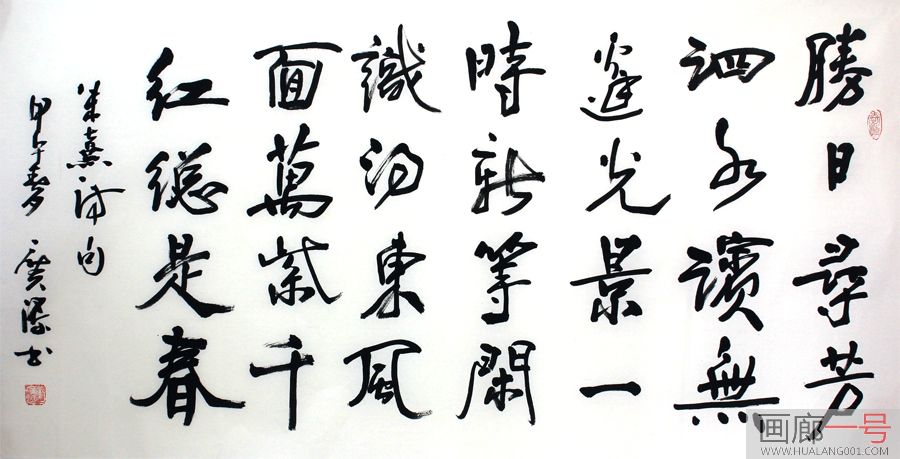 勝日尋芳
泗水濱無
邊光景一
時新等閑
識得東風
面萬紫千
紅總是春
朱熹诗句
甲午春
书
画廊一号
WWW.HUALANG001.COM